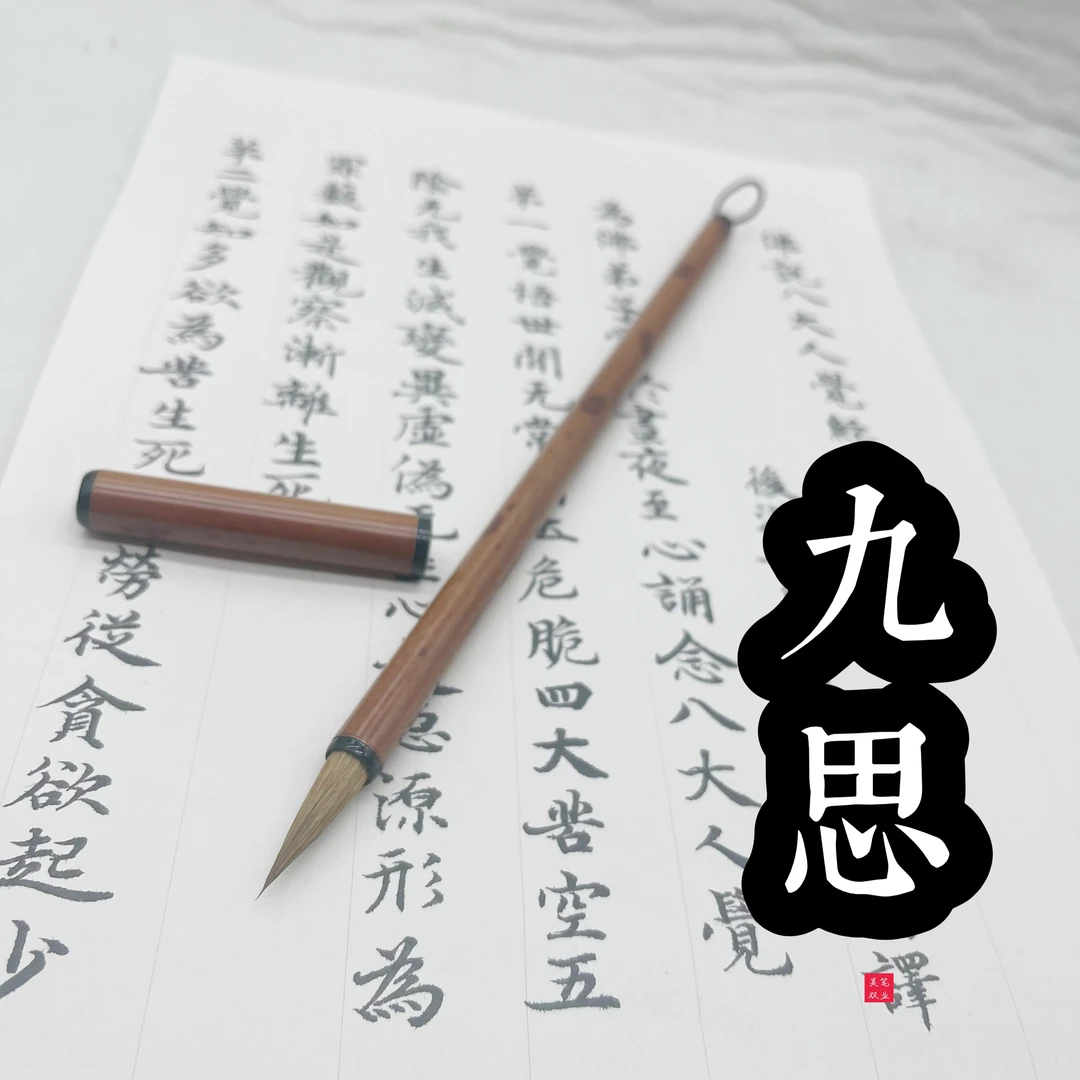 佛說八大人覺經
後漢
譯
為佛弟子於晝夜至心誦念八大人覺
第一覺悟世間无常危脆四大苦空五
陰无我生滅變異虛偽无主心惡源形為
罪藪如是觀察漸離生死
第二覺知多欲為苦生死勞從貪欲起少
九思
美笔
双业